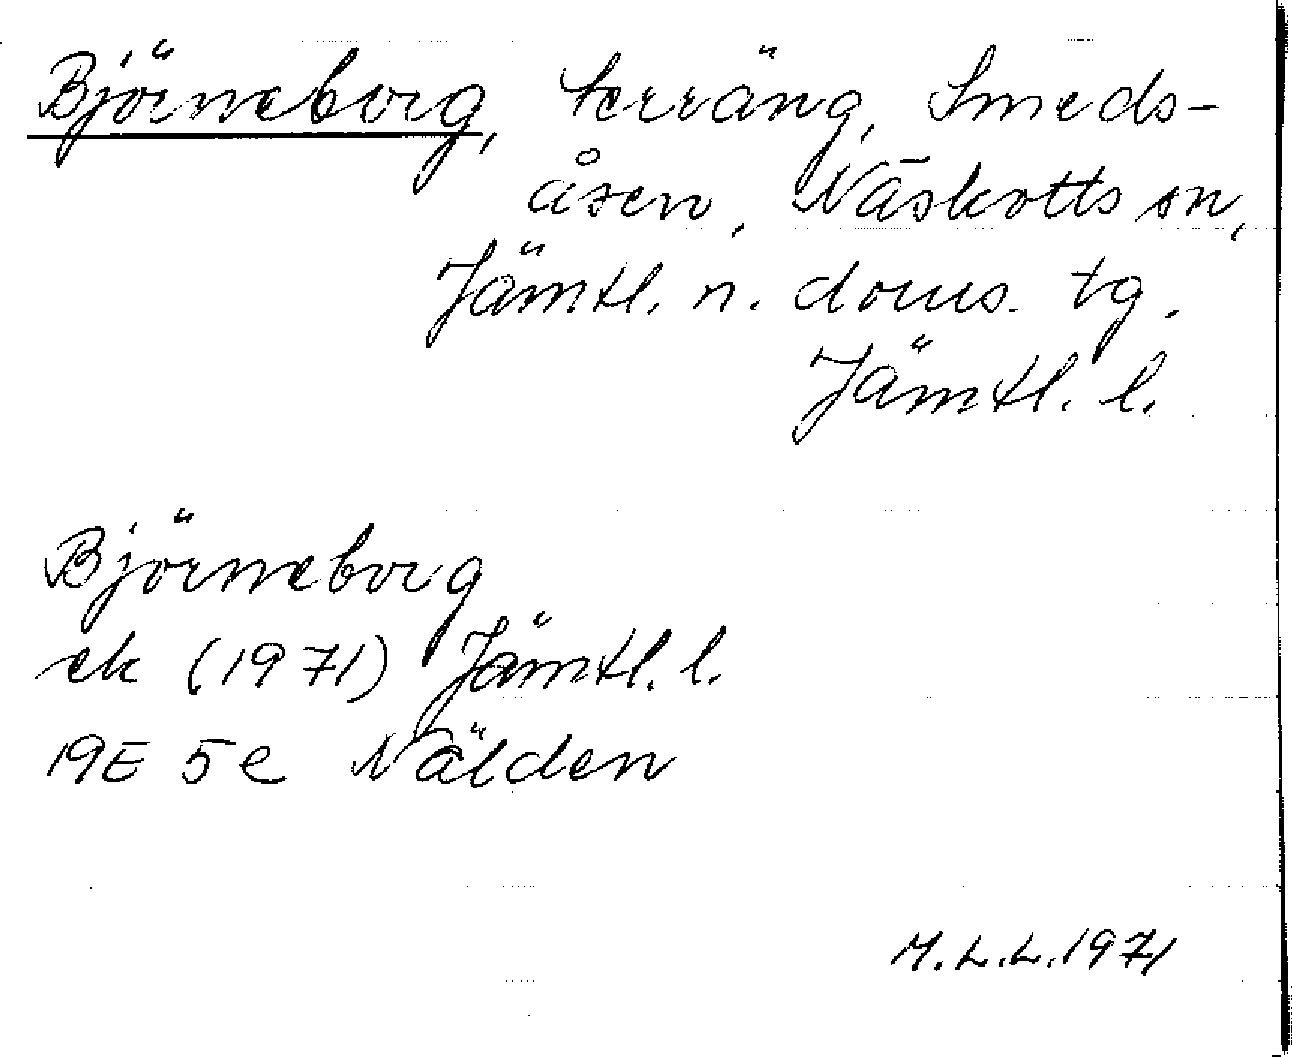 Björneborg, terräng, Smeds-
åsen, Näskotts sn,
Jämtl. n. doms. tg.
Jämtl. l.
Björneborg
ek (1971) Jämtl. l.
19E 5e Nälden
M.L.L. 1971